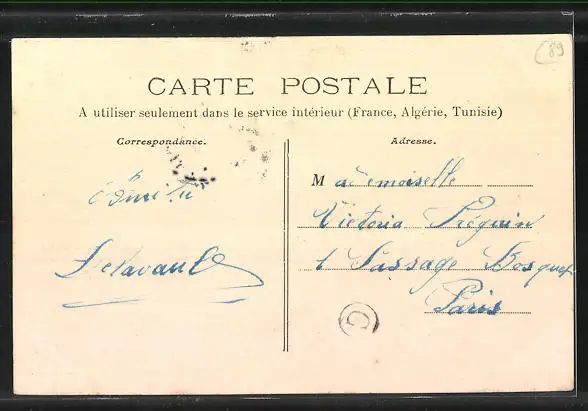 89
CARTE POSTALE
A utiliser seulement dans le service intérieur (France, Algérie, Tunisie)
Correspondance.
Adresse.
Delavault
Mademoiselle
Victoria Préguin
1 Passage Bosquet
Paris
G